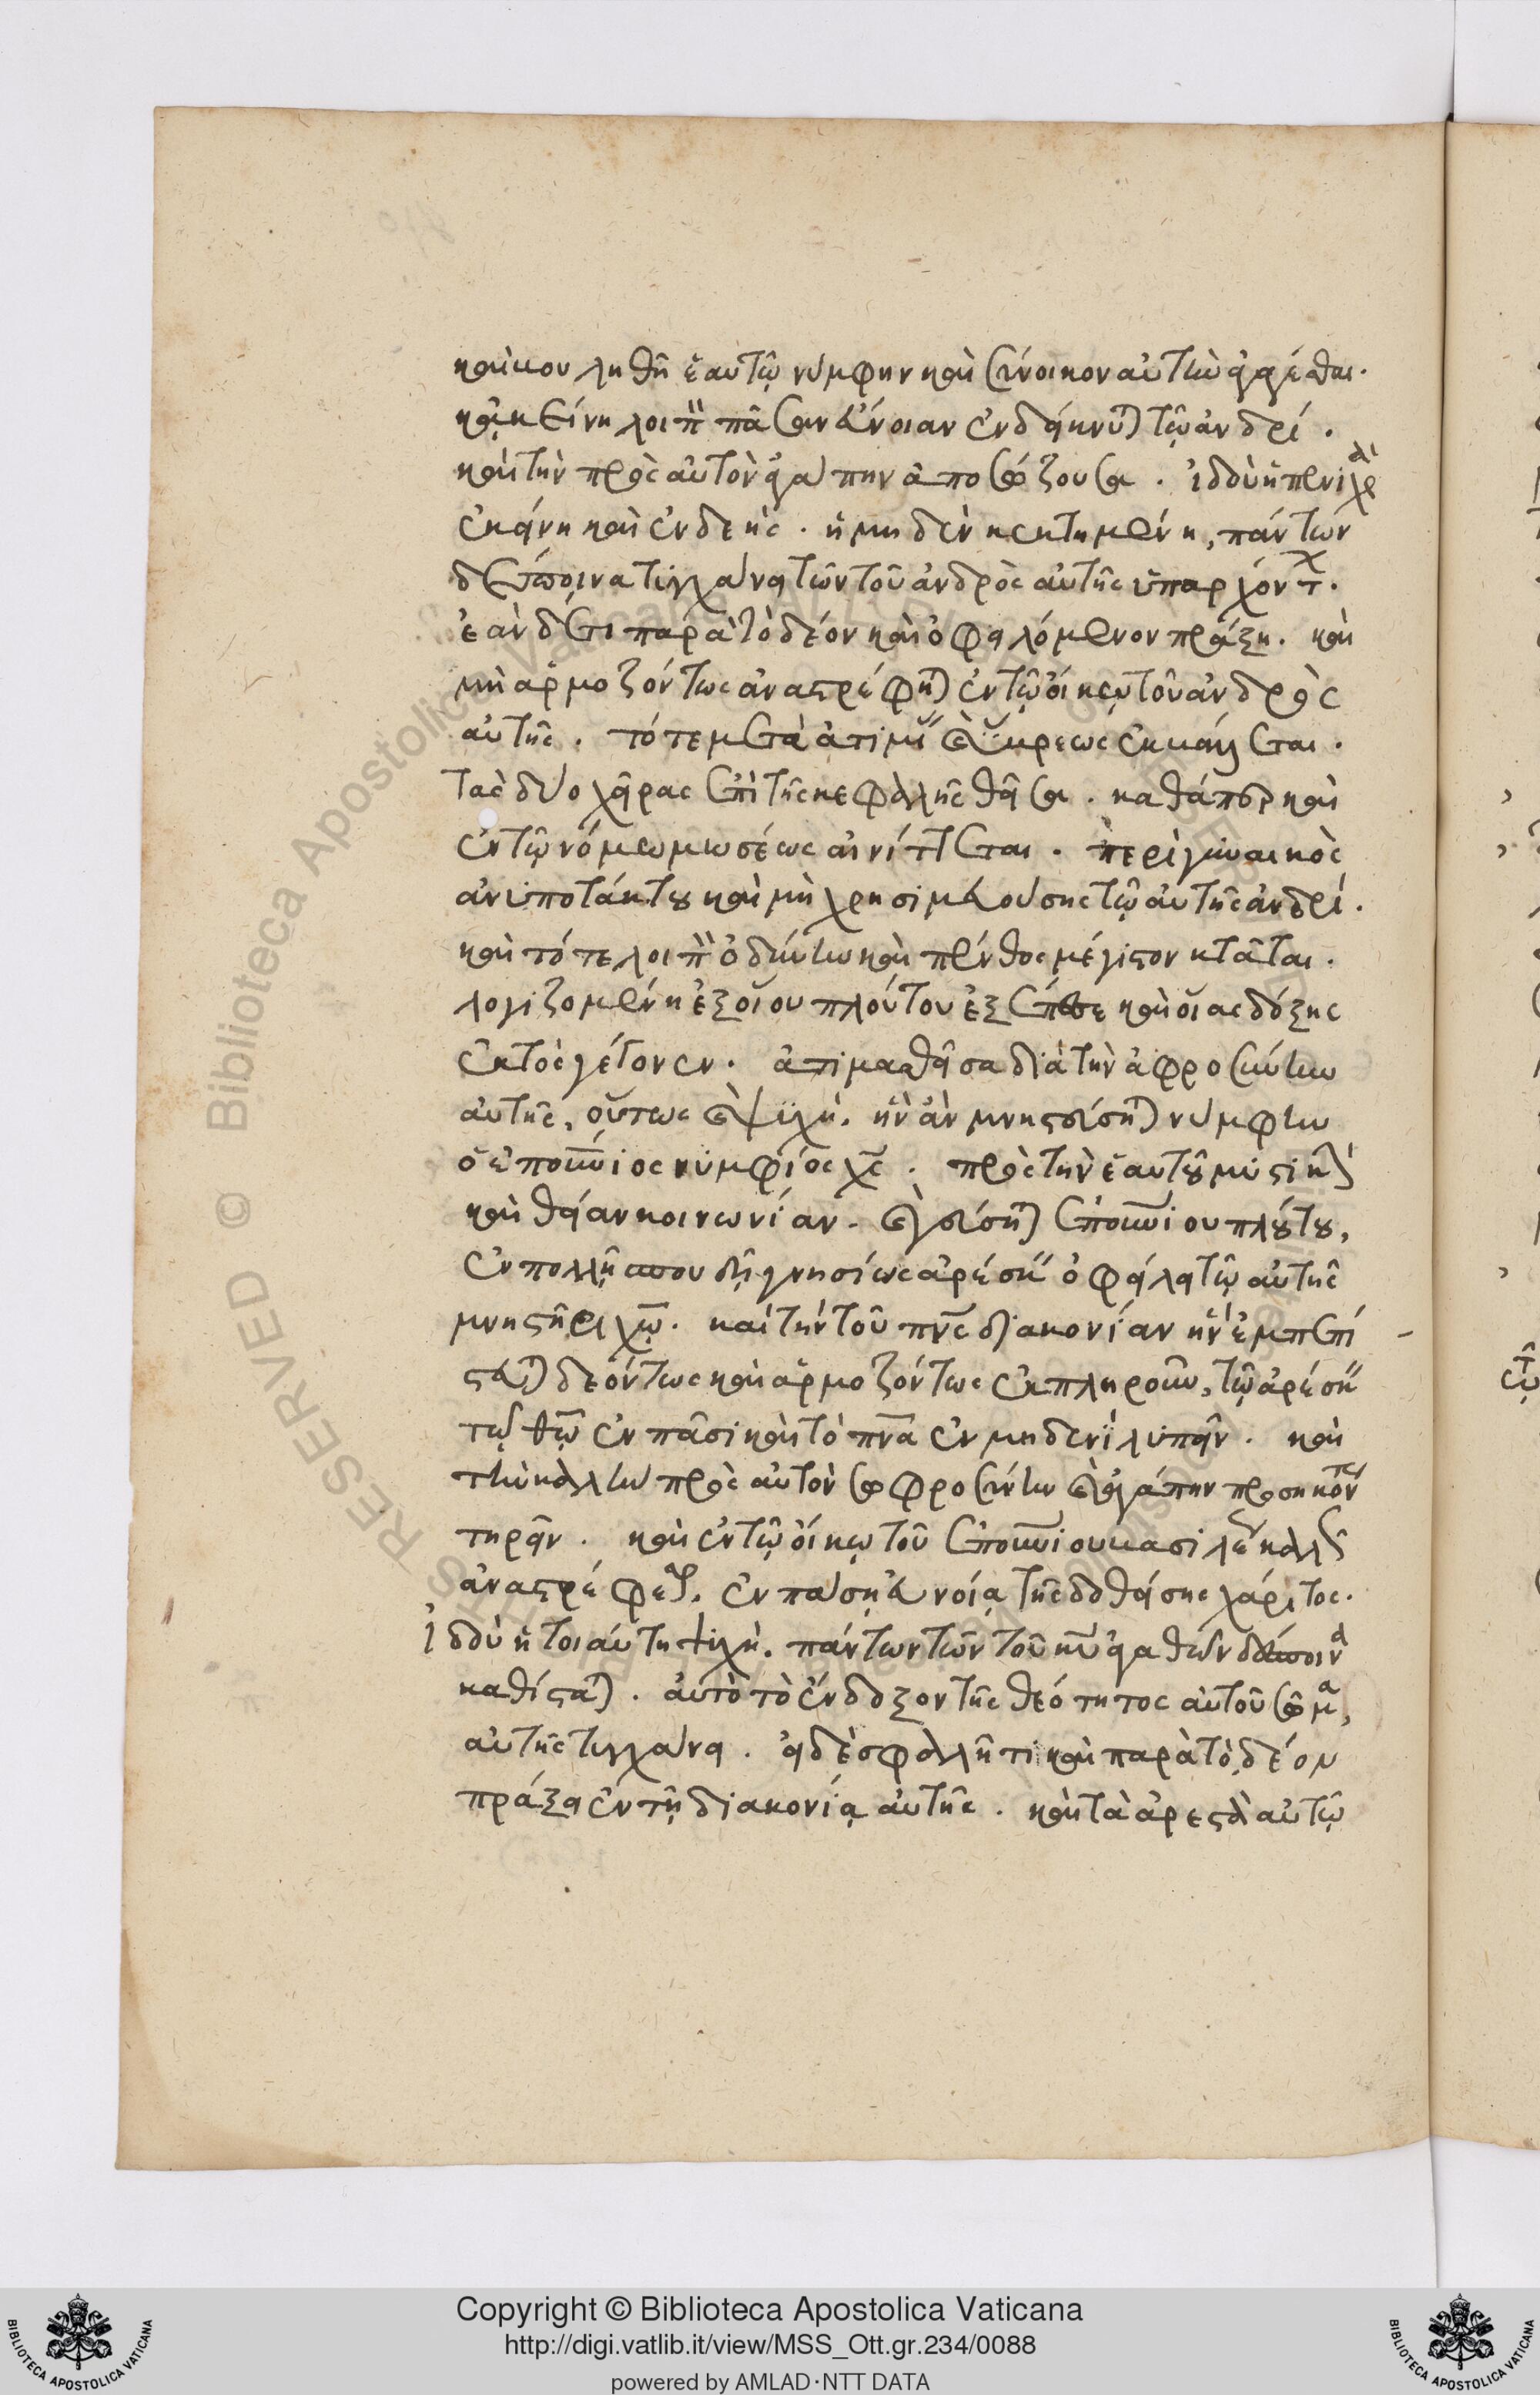 καὶ βουληθῆ ἑαυτῷ νύμφην καὶ σύνοικον αὐτὴν ἀγαγέσθαι.
κἀκείνη λοιπὸν πᾶσαν εὔνοιαν ἐνδείκνυται τῷ ἀνδρί.
καὶ τὴν πρὸς αὐτὸν ἀγάπην ἀποσώζουσα. ἰδοὺ ἡ πενιχρὰ
ἐκείνη καὶ ἐνδεής. ἡ μηδὲν κεκτημένη, πάντων
δέσποινα τυγχάνει τῶν τοῦ ἀνδρὸς αὐτῆς ὑπαρχόντων.
ἐὰν δέ τι παρὰ τὸ δέον καὶ ὀφειλόμενον πράξη. καὶ
μὴ ἁρμοζόντως ἀναστρέφηται ἐν τῷ οἴκῳ τοῦ ἀνδρὸς
αὐτῆς. τότε μετὰ ἀτιμίας καὶ ὕβρεως ἐκβάλλεται.
τὰς δύο χεῖρας ἐπὶ τῆς κεφαλῆς θεῖσα. καθάπερ καὶ
ἐν τῷ νόμῳ μωσέως αἰνίττεται. περὶ γυναικὸς
ἀνυποτάκτου καὶ μὴ χρησιμευούσης τῷ αὐτῆς ἀνδρί.
καὶ τότε λοιπὸν ὀδύνην καὶ πένθος μέγιστον κτᾶται.
λογιζομένη ἐξ οἵου πλούτου ἐξέπεσε καὶ οἵας δόξης
ἐκτὸς γέγονεν. ἀτιμασθεῖσα διὰ τὴν ἀφροσύνην
αὐτῆς, οὕτως καὶ ψυχὴ. ἣν ἂν μνηστεύσηται νύμφην
ὁ ἐπουράνιος νυμφίος χς. πρὸς τὴν ἑαυτοῦ μυστικὴν
καὶ θείαν κοινωνίαν. καὶ γεύσηται ἐπουρανίου πλούτου,
ἐν πολλῇ σπουδῇ γνησίως ἀρέσκειν ὀφείλει τῷ αὐτῆς
μνηστῆρι χῷ. καὶ τὴν τοῦ πνς διακονίαν ἣν ἐμπεπί
στευται δεόντως καὶ ἁρμοζόντως ἐκπληροῦν, τῷ ἀρέσκειν
τῷ θῷ ἐν πᾶσι καὶ τὸ πνα ἐν μηδενὶ λυπεῖν. καὶ
τὴν καλὴν πρὸς αὐτὸν σωφροσύνην καὶ ἀγάπην προσηκόντως
τηρεῖν. καὶ ἐν τῷ οἴκῳ τοῦ ἐπουρανίου βασιλέως καλῶς
ἀναστρέφεσθαι, ἐν πάσῃ εὐνοίᾳ τῆς δοθείσης χάριτος.
ἰδοὺ ἡ τοιαύτη ψυχὴ. πάντων τῶν τοῦ κυ ἀγαθῶν δέσποινα
καθίσταται. αὐτὸ τὸ ἔνδοξον τῆς θεότητος αὐτοῦ σῶμα,
αὐτῆς τυγχάνει. εἰ δὲ σφαλῇ τι καὶ παρὰ τὸ δέον
πράξει ἐν τῇ διακονίᾳ αὐτῆς. καὶ τὰ ἀρεστὰ αὐτῷ
Copyright © Biblioteca Apostolica Vaticana
http://digi.vatlib.it/view/MSS_Ott.gr.234/0088
powered by AMLAD·NTT DATA